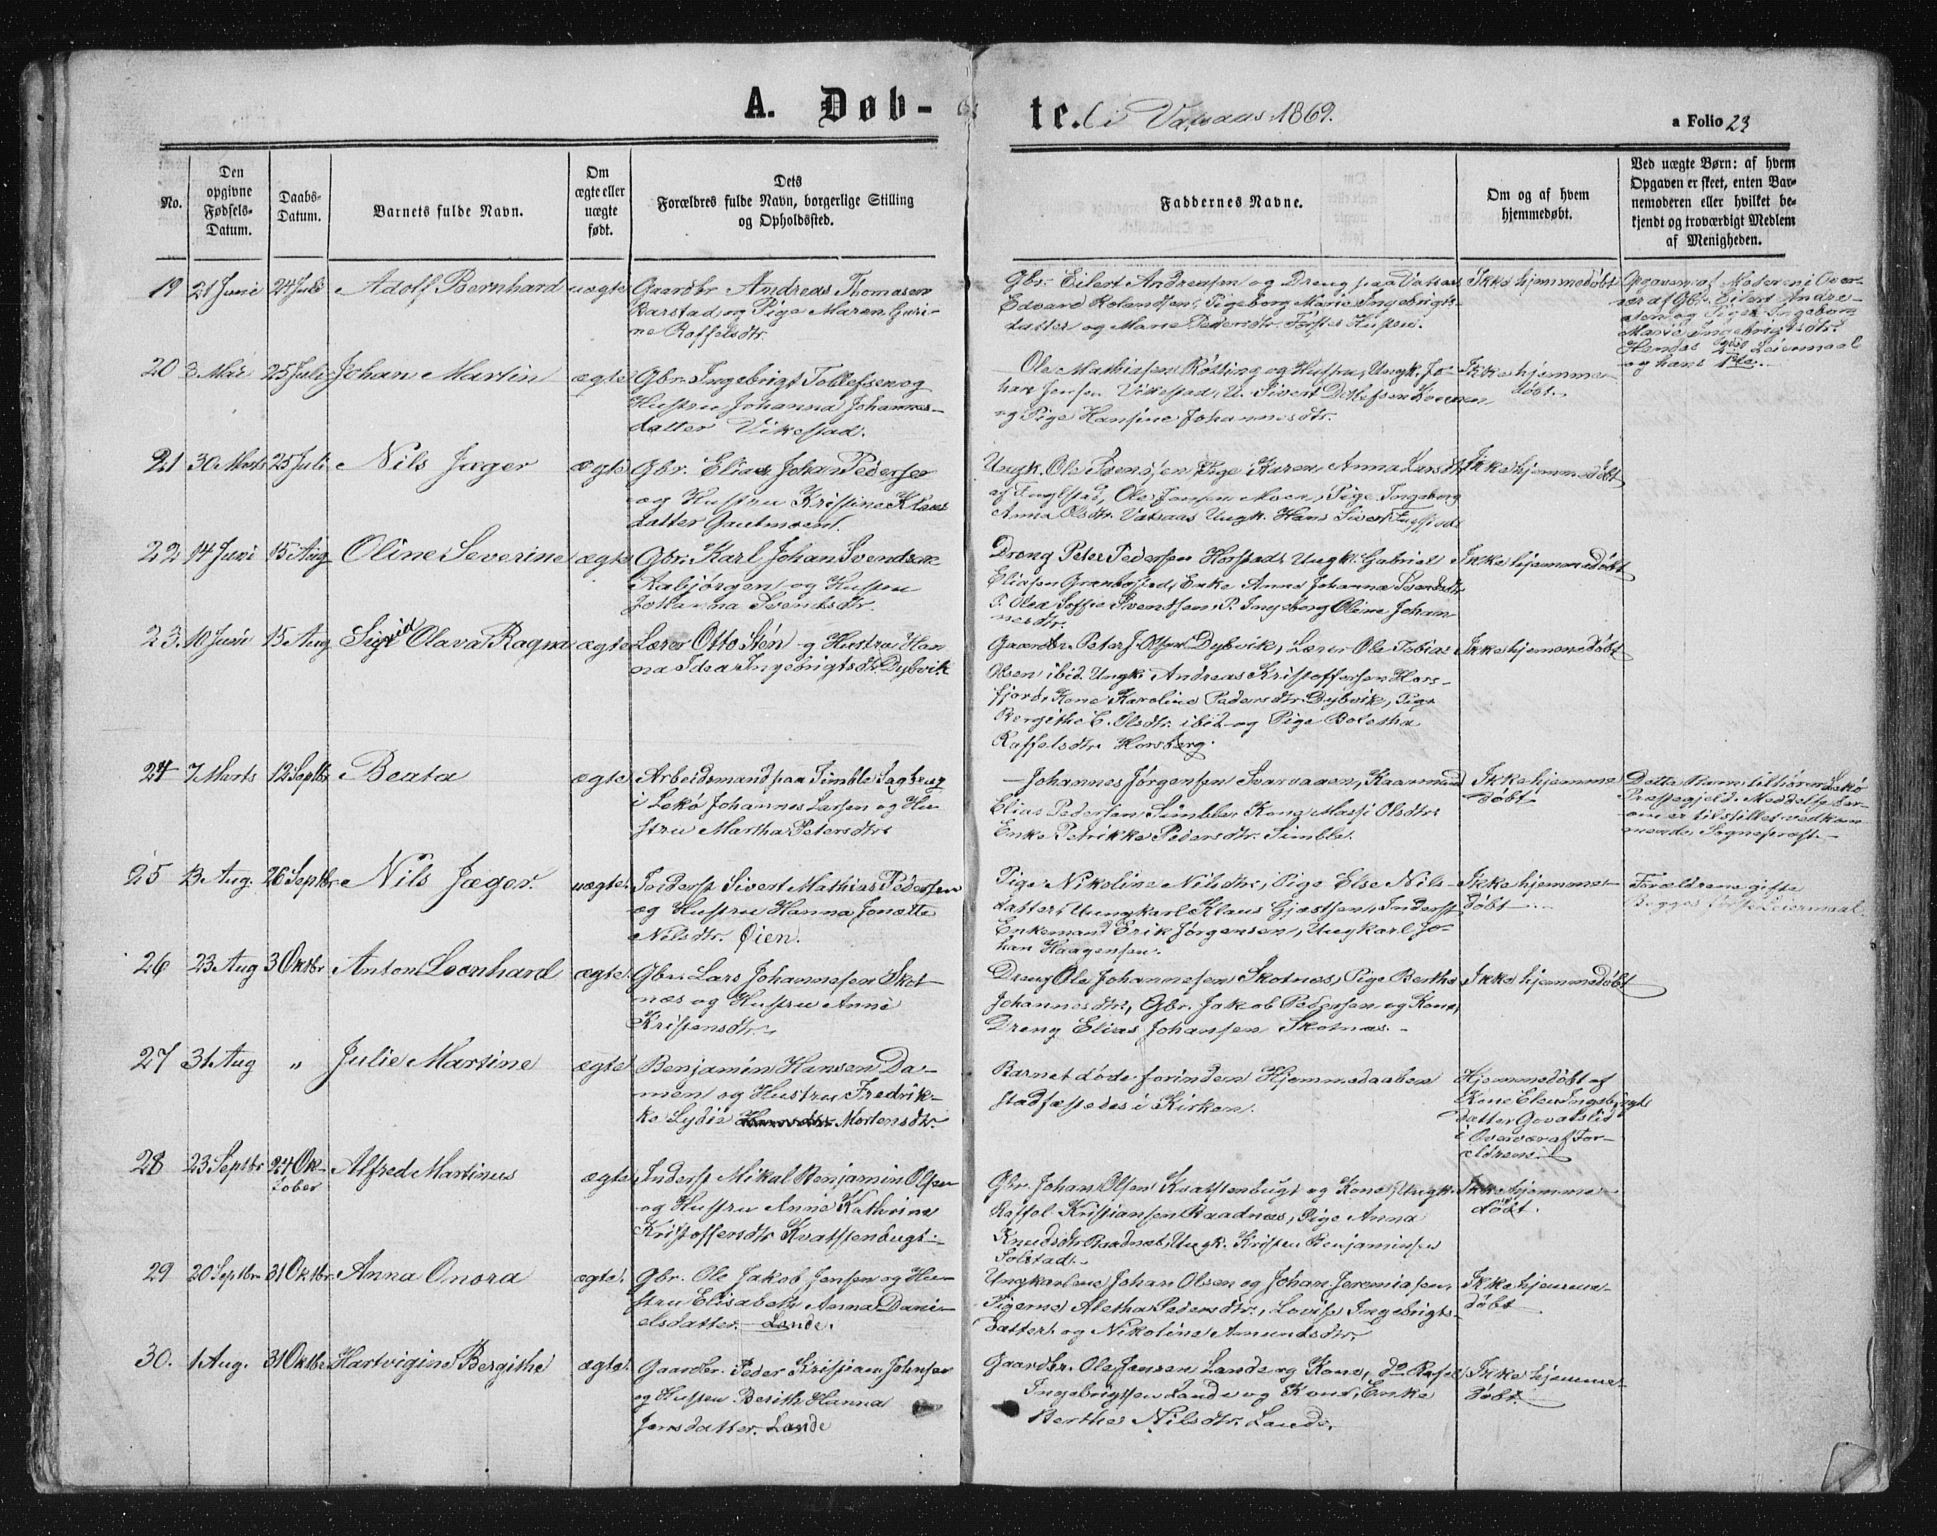 A. Døb-
te. (i Vatsaas 1869.
a Folio 23
No.
Den
opgivne
Fødsels-
Datum.
Daabs-
Datum.
Barnets fulde Navn.
Om
ægte eller
uægte
født.
Dets
Forældres fulde Navn, borgerlige Stilling
og Opholdssted.
Faddernes Navne.
Om og af hvem
hjemmedøbt.
Ved uægte Børn: af hvem
Opgaven er skeet, enten Bar-
nemoderen eller hvilket be-
kjendt og troværdigt Medlem
af Menigheden.
19 21 Juni 24 Juli Adolf Bernhard uægte
Gaardbr Andreas Thomasen
Barstad og Pige Maren
ne Roffelsdtr.
Gbr. Eilert Andreasen og Dreng paa Vatsaas
Edvard Rolandsen, Pige Inge Marie Ingebrigts-
datter og Marie Pedersdtr.
Ikke hjemmedøbt
Opgaven af Moderen i Over-
vær af Gbr. Eilert Andre-
asen og Pigen Ingeborg
Marie Ingebrigtsdtr.
Hendes Leiermaal
og hans 1ste.
20 3 Mai 25 Juli Johan Martin ægte
Gbr. Ingebrigt Tollefsen og
Hustru Johanna Johannes-
datter Vikestad.
Ole Mathissen Rötting og Hustru, Ungk. Jo-
han Jensen Vikestad, U. Sivert Detlefsen
og Pige Hansine Johannesdtr.
Ikke hjemme-
døbt.
21 30 Marts 25 Juli Nils Jæger ægte
Gbr. Elias Johan Pedersen
og Hustru Kristine Klaus
datter Gautmoen.
Ungk. Ole Pige Karen Anna Larsdtr
af Ole Jensen Moen, Pige Ingeborg
Anna Olsdtr. Vatsaas Ungk. Hans Sivert
Ikke hjemmedøbt
22 14 Juni 15 Aug Oline Severine ægte
Gbr. Karl Johan Svendsen
Kalbjørgen og Hustru
Johanna Svendsdtr.
Dreng Peter Pedersen Horstad, Ungk. Gabriel
Eliasen Enke Anne Johanna Svendsdtr
P. Olea Soffie Sventsen, P. Ingeborg Oline Johan-
nesdtr.
Ikke hjemmedøbt
23. 10 Juni 15 Aug Sigrid Olava Ragna ægte
Lærer Otto Stén og Hustru Han
na Idea Ingebrigtsdtr. Dybvik
Gaardbr. Peter J. Olsen Dybvik, Lærer Ole Tobias
Olsen ibid. Ungk. Andreas Kristoffersen Hors-
fjord, Kone Karoline Pedersdtr. Dybvik, Pige
Bergithe C. Olsdtr. ibid og Pige Boletha
Raffelsdtr. Horsberg.
Ikke hjemmedøbt
24 7 Marts 12 Septbr Beata ægte
Arbeidsmand paa Simble Sagbrug
i Lekø Johannes Larsen og Hu-
stru Martha Petersdtr.
Johannes Jørgensen Svarvaagen, Kaarmand
Elias Pedersen Simble, Kone Massi Olsdtr
Enke Petrikke Pedersdtr. Simble.
Ikke hjemme
døbt
Dette Barn tilhører Lekø
Præstegjeld. Meddelelse der-
om er tilstillet vedkom-
mende Sognepræst.
25 13 Aug. 26 Septbr. Nils Jæger. uægte.
Inderst Sivert Mathias Pedersen
og Hustru Hanna Jonette
Nilsdtr. Øien.
Pige Nikoline Nilsdtr., Pige Else Nils-
datter, Ungkarl Klaus Gjestsen, Inderst
Enkemand Erik Jørgensen, Ungkarl Jo-
han Haagensen.
Ikke hjemme-
døbt
Forældrene gifte
Begges første Leiermaal.
26 23 Aug 3 Oktbr Anton Leonhard ægte.
Gbr. Lars Johannesen Skot-
næs og Hustru Anne
Kristensdtr.
Dreng Ole Johannesen Skotnæs, Pige Berthe
Johannesdtr, Gbr. Jakob Petersen og Kone,
Dreng Elias Johansen Skotnæs.
Ikke hjemmedøbt
27 31 Aug " Julie Martine ægte
Benjamin Hansen Da-
men og Hustru Fredrik-
ke Lydie Mortensdtr.
Barnet døde forinden Hjemmedaaben
stadfæstedes i Kirken.
Hjemmedøbt af
Kone Elen Ingebrigts
datter
i Overvær af For-
ældrene.
28 23 Septbr 24 Ok-
tober Alfred Martinus ægte
Inderst Mikal Benjamin Olsen
og Hustru Anne Kathrine
Kristoffersdtr Kvatstenbugt.
Gbr. Johan Olsen Kvatstenbugt og Kone, Ungk.
Roffol Kristiansen Raadnæs, Pige Anna
Knudsdtr Raadnæs, Ungk. Kristen Benjaminsen
Solstad.
Ikke hjemme-
døbt.
29 20 Septbr 31 Oktbr. Anna Onora ægte.
Gbr. Ole Jakob Jensen og Hu-
stru Elisabeth Anna Dani-
elsdatter. Lande.
Ungkarlene Johan Olsen og Johan Jeremiasen,
Pigerne Aletha Pedersdtr., Lovise Ingebrigts-
datter og Nikoline Amundsdtr.
Ikke hjemme-
døbt
30. 1 Aug. 31 Oktbr. Hartvigine Bergithe ægte.
Gaardbr. Peder Kristian Johnsen
og Hustru Berith Hanna
Jensdatter. Lande
Gaardbr. Ole Jensen Lande og Kone, do Rafel
Ingebrigtsen Lande og Kone, Enke
Berthe Nilsdtr. Lande.
Ikke hjemme-
døbt.